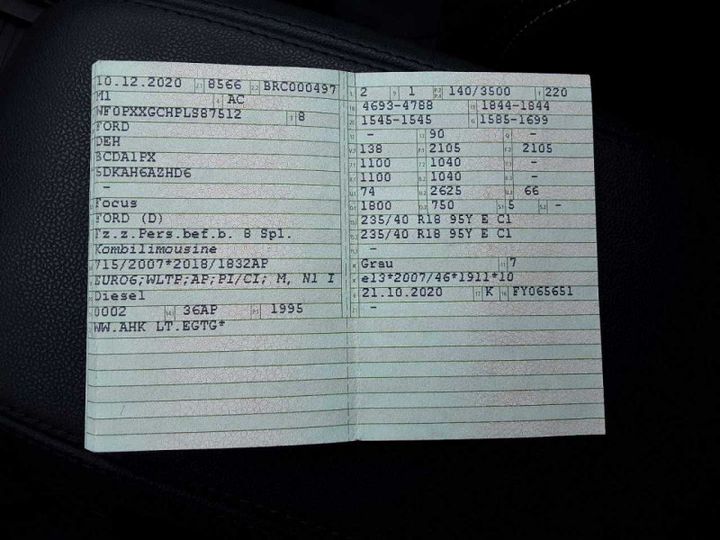 10.12.2020 8566 BRC000497
M1 AC
WF0PXXGCHPLS87512 8
FORD
DEH
BCDA1PX
5DKAH6AZHD6
-
Focus
FORD (D)
Fz.z.Pers.bef.b. 8 Spl.
Kombilimousine
715/2007*2018/1832AP
EURO6;WLTP;AP;PI/CI; M, N1 I
Diesel
0002 36AP 1995
WW.AHK LT.EGTG*
2 1 140/3500 220
4693-4788 1844-1844
1545-1545 1585-1699
- 90 -
138 2105 2105
1100 1040 -
1100 1040 -
74 2625 66
1800 750 5 -
235/40 R18 95Y E C1
235/40 R18 95Y E C1
-
Grau 7
e13*2007/46*1911*10
21.10.2020 K FY065651
-